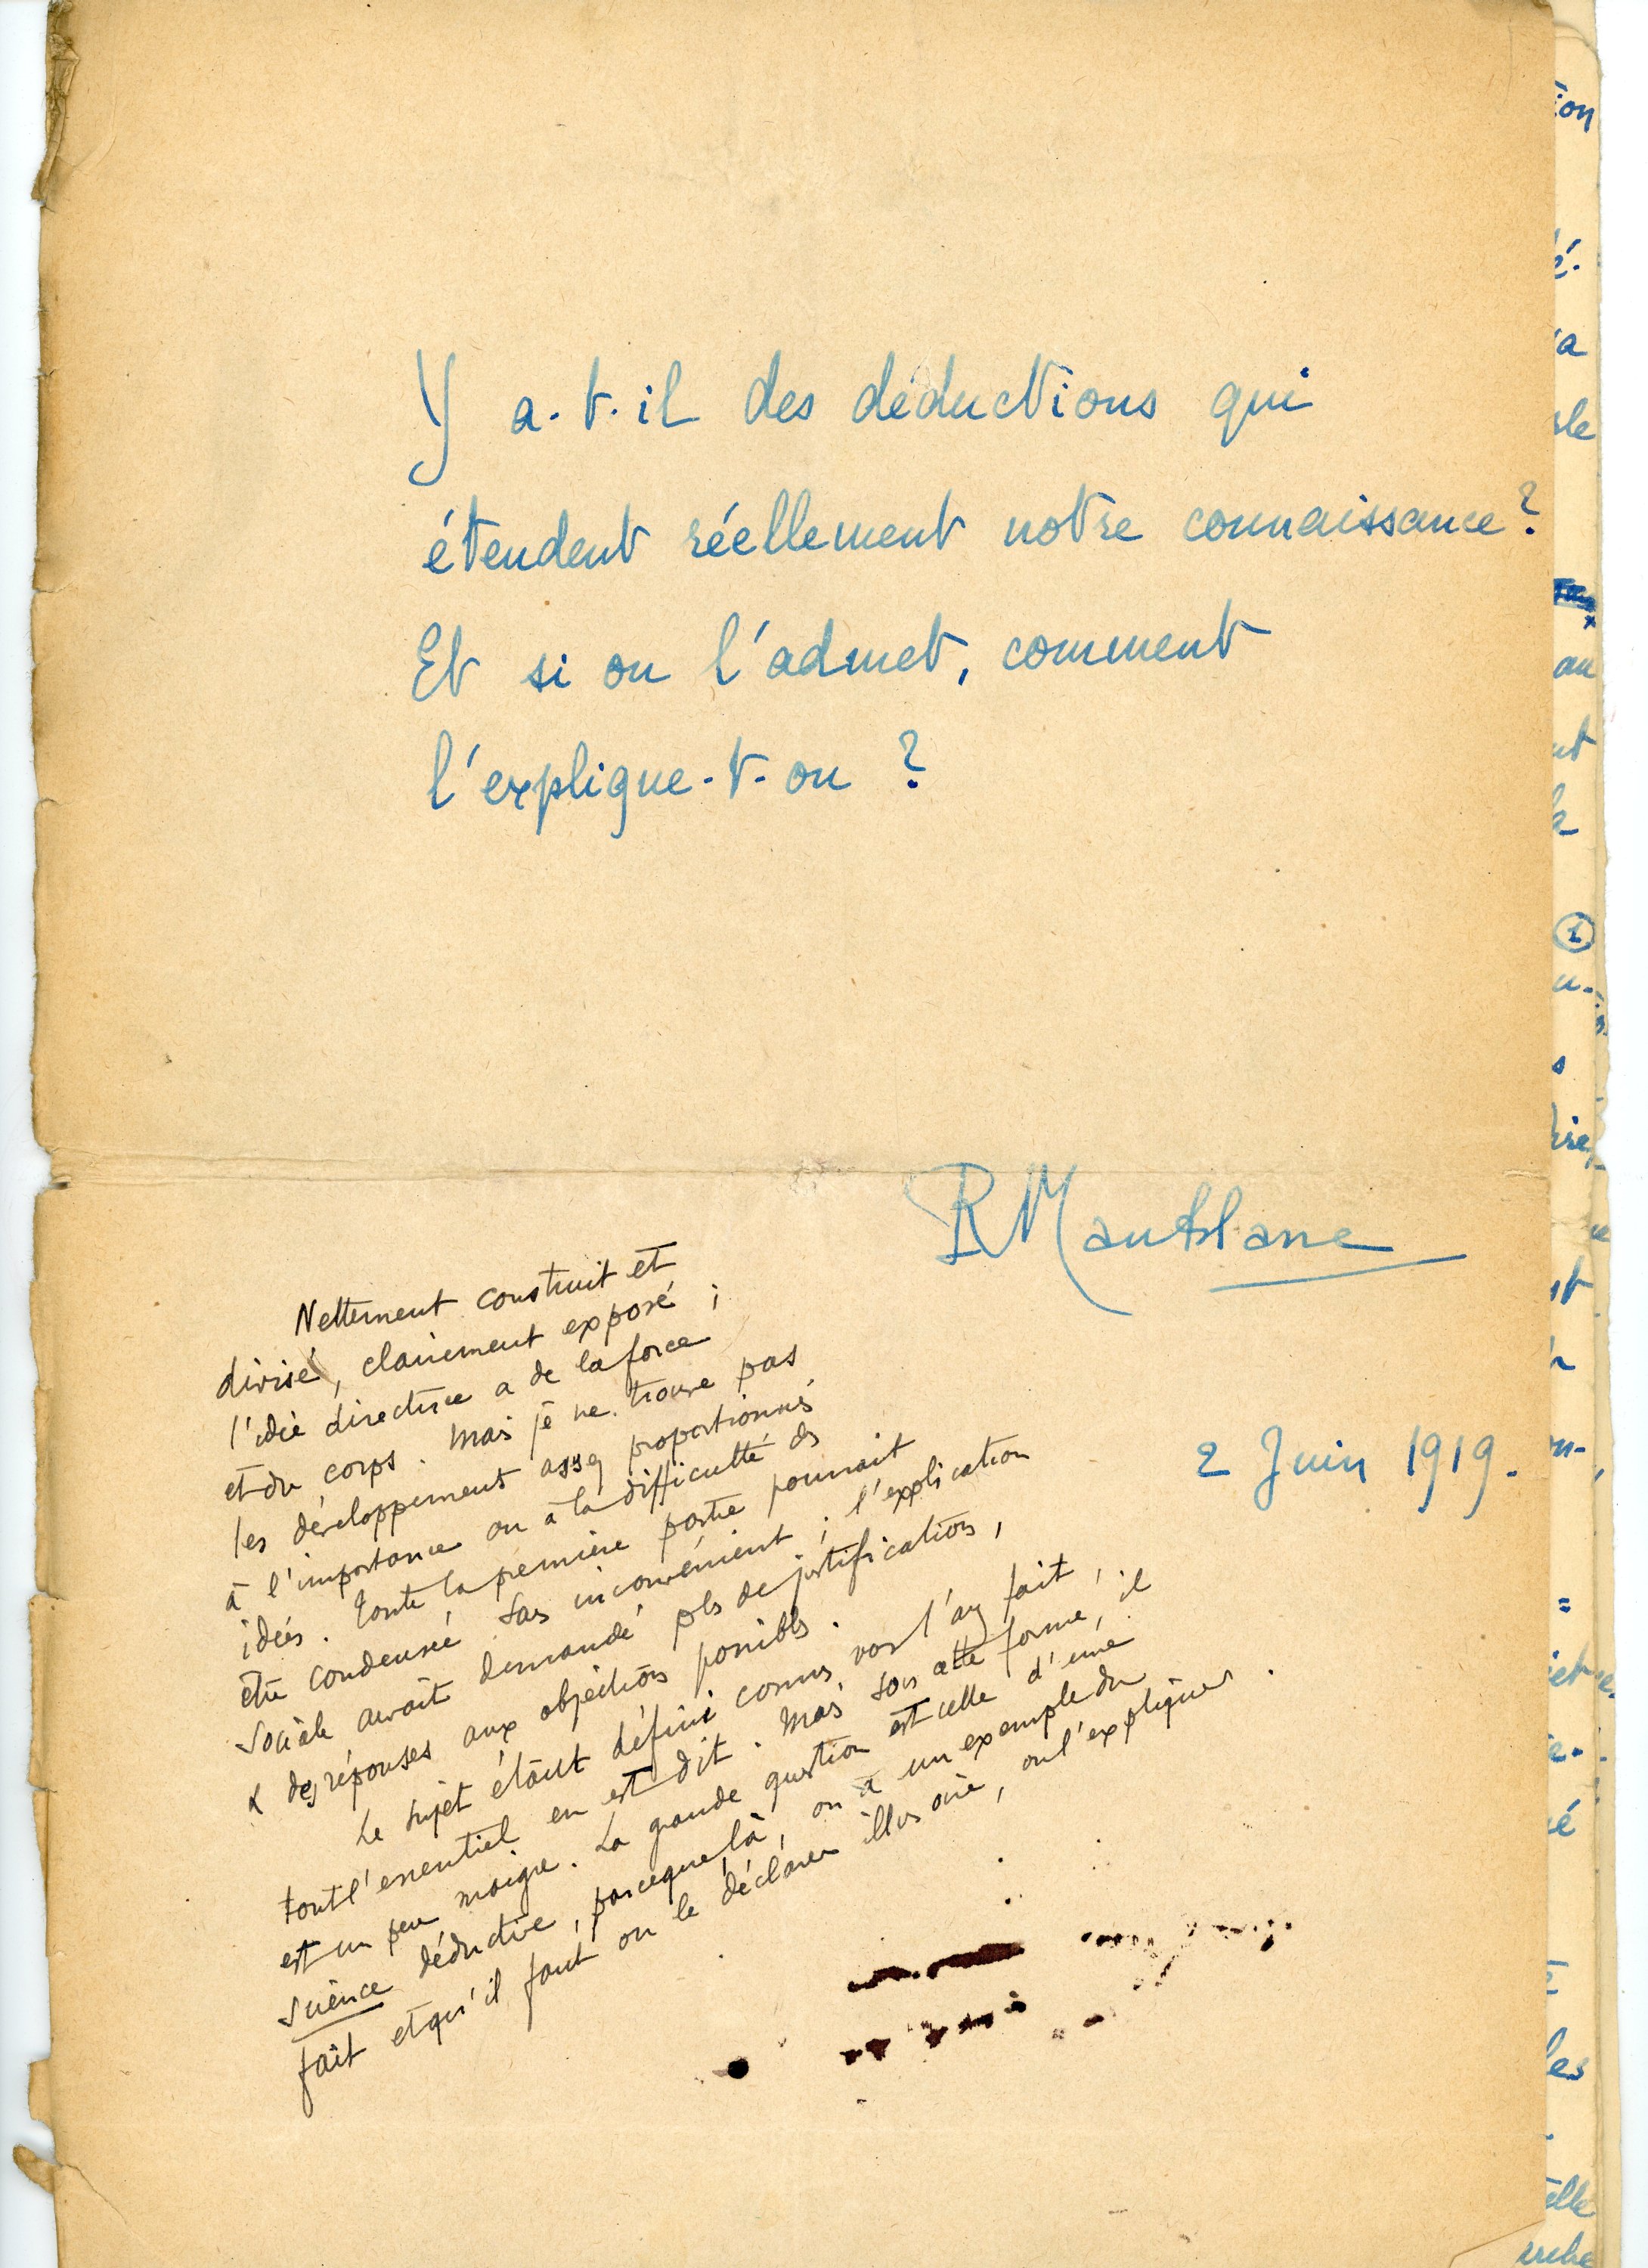 Y a.t.il des déductions qui
étendent réellement notre connaissance ?
Et si on l'admet, comment
l'explique.t.on ?
R Maublanc
Nettement construit et
divisé, clairement exposé ;
l'idée directrice a de la force
et du corps. Mais je ne trouve pas
les développements assez proportionnés
à l'importance ou à la difficulté des
idées. Toute la première partie pourrait
être condensée sans inconvénient ; l'explication
sociale aurait demandé pls de justifications,
& des réponses aux objections possibles.
Le sujet étant défini comme vous l'avez fait,
tout l'essentiel en est dit. Mais sous cette forme, il
est un peu maigre. La grande question est celle d'une
science déductive, parceque là, on a un exemple du
fait et qu'il faut ou le déclarer illusoire, ou l'expliquer.
2 Juin 1919.